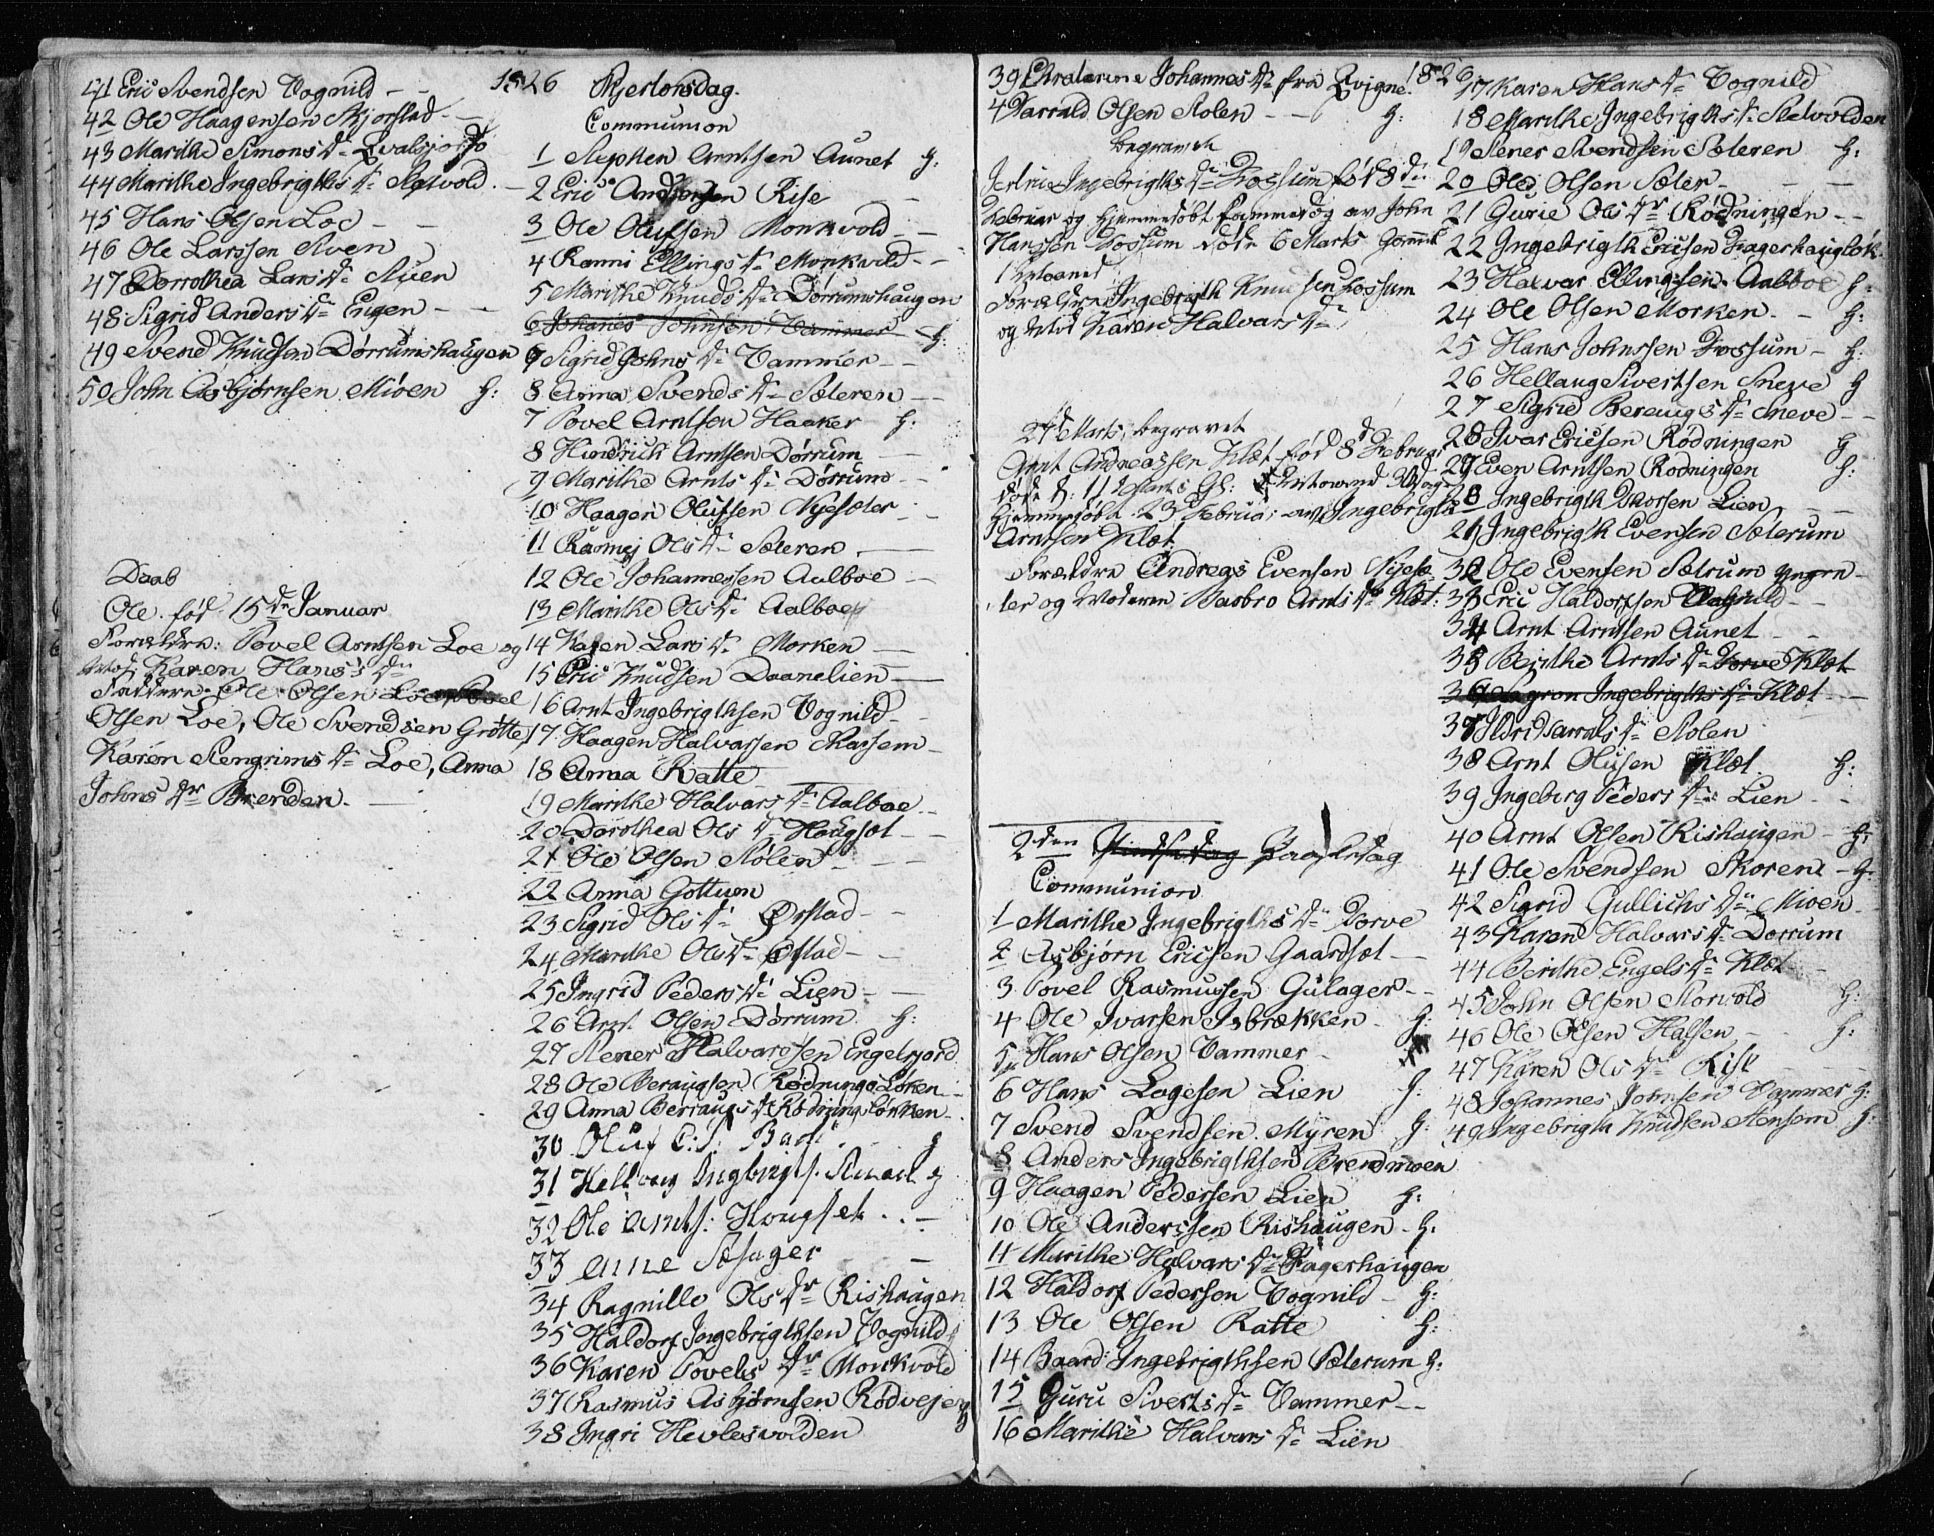 41 Eric Svendsen Vognild - -
42 Ole Haagensen Skjorstad - -
43 Marithe Simons Dr
44 Marithe Ingebrigths Dr Sletvold -
45 Hans Olsen Loe - -
46 Ole Larssen Sven
47 Dorrothea Lars Dr Sven
48 Sigrid Anders Dr Engen - -
49 Svend Knudsen Dørrumshaugen
50 John Asbjørnsen Mioen H:
Daab
Ole fød 15de Januar
Foreldre: Povel Arntsen Loe og
Karen Hans's Dr
Faddere: Ole Olsen Loe
Olsen Loe, Ole Svendsen Grøtte,
Karen Stengrims Dr Loe, Anna
Johns Dr Brenden.
1826 Skjertorsdag.
Communion
1 Stephen Arntsen Aunet H:
2 Eric Rise -
3 Ole Olufsen Monkvold - -
4 Ranni Ellings Dr Monkvold - -
5 Marithe Knuds Dr Dørrumshaugen
6 Johanes Johnsen Vammer - H:
6 Sigrid Johns Dr Vammer - -
8 Anna Svends Dr Sæteren - -
7 Povel Arntsen Haaker H:
8 Hindrich Arntsen Dørrum -
9 Marithe Arnts Dr Dørrum - -
10 Haagen Olufsen Nyesæter - -
11 Rasmej Ols Dr Sæteren -
12 Ole Johannessen Aalboe -
13 Marithe Ols Dr Aalboe
14 Karen Lars Dr Morken -
15 Eric Knudsen Daanelien -
16 Arnt Ingebrigthsen Vognild -
17 Haagen Halvarssen -
18 Anna Ratte
19 Marithe Halvars Dr Aalboe - -
20 Dorothea Ols Dr Haugset - -
21 Ole Olsen Stølen - -
22 Anna Gottuen
23 Sigrid Ols Dr Ørstad - -
24 Marithe Ols Dr Østad - -
25 Ingrid Peders Dr Lien - -
26 Arnt Olsen Dørrum H:
27 Stener Halvarssen Engelsjord
28 Ole Beraugsen Rødningsløken -
29 Anna Berraugs Dr Rødningsløkken -
30 Oluf E: S: Bach H
31 H
32 Ole Arnts: Hougset . . -
33 Anne Sæsager - -
34 Ragnille Ols Dr Rishaugen
35 Haldorf Ingebrigthsen Vognild H
36 Karen Povels Dr Monkvold
37 Rasmus Asbjørnsen Rødvejen H
38 Ingri Hevlesvolden
39 Chatarine Johannes Dr fra Qvigne. 1826
4 Harrald Olsen Stolen - - H:
Begravet
Ingebrigths Dr Fossum fød 8de
Februar og hjemmedøbt samme dag av John
Hanssen Fossum døde 6 Marts Gammel
1 Maaned
Foreldre Ingebrigth Knudsen Fossum
og Karen Halvars Dr
27de Marts, begravet
Arnt Andreassen Klæt fød 8de Februar
døde d: 11 Marts Gl:
hjemmedøbt 23 Februar av Ingebrigth
Arntsen Klæt
Foreldre Andreas Evensen Nyesæ-
ter og Moderen Barbro Arnts Dr Klæt:
2den Pindsedag Paaskedag
Communion
1 Marithe Ingebrigths Dr Torve
2 Asbjørn Ericsen Gaardsæt - -
3 Povel Rasmussen Gulager - -
4 Ole Ivarsen Isbrækken - H:
5 Hans Olsen Vammer -
6 Hans Lagesen Lien H:
7 Svend Svendsen Myren H:
8 Anders Ingebrigthsen Brendmoen
9 Haagen Pedersen Lien H:
10 Ole Anderssen Rishaugen - H:
11 Marithe Halvars Dr Fagerhaugen
12 Haldorf Pedersen Vognild - H:
13 Ole Olsen Ratte H:
14 Baard Ingebrigthsen Sæterum H:
15 Guru Siverts Dr Vammer - -
16 Marithe Halvars Dr Lien
17 Karen Hans Dr Vognild
18 Marithe Ingebrigths Dr Sletvolden
19 Stener Svendsen Sæteren H:
20 Ole Olsen Sæter - - -
21 Gurie Ols Dr Rødningen - -
22 Ingebrigth Ericsen Fagerhaugløk
23 Halvor Ellingsen Aalboe H:
24 Ole Olsen Morken - - H:
25 Hans Johnssen Fossum - H:
26 Hellaug Sivertsen Sneve H
27 Sigrid Beraugs Dr Sneve - -
28 Ivar Ericsen Rødningen H
29 Even Arntsen Rødningen H:
28 Ingebrigth Lien -
29 Ingebrigth Evensen Sæterum
32 Ole Evensen Sætrum Yngre -
33 Eric Haldorfsen Vognild -
34 Arnt Arntsen Aunet - -
35 Berithe Arnts Dr Klæt
36 Ingebrigths Dr Klæt -
37 Ildrid Harralds Dr Stolen
38 Arnt Olufsen Klæt H:
39 Ingeborg Peders Dr Lien - -
40 Arnt Olsen Rishaugen - H:
41 Ole Svendsen Skorem - H:
42 Sigrid Gullichs Dr Mioen -
43 Karen Halvars Dr Dørrum
44 Berithe Engels Dr Klæt -
45 John Olsen Storvold H:
46 Ole Olsen Halsen - - H:
47 Karen Ols Dr Rise
48 Johannes Johnsen Vammer H:
49 Ingebrigth Knudsen Stensem H: